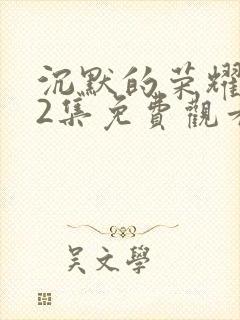 沉默的荣耀
2集免費觀看
吴文學